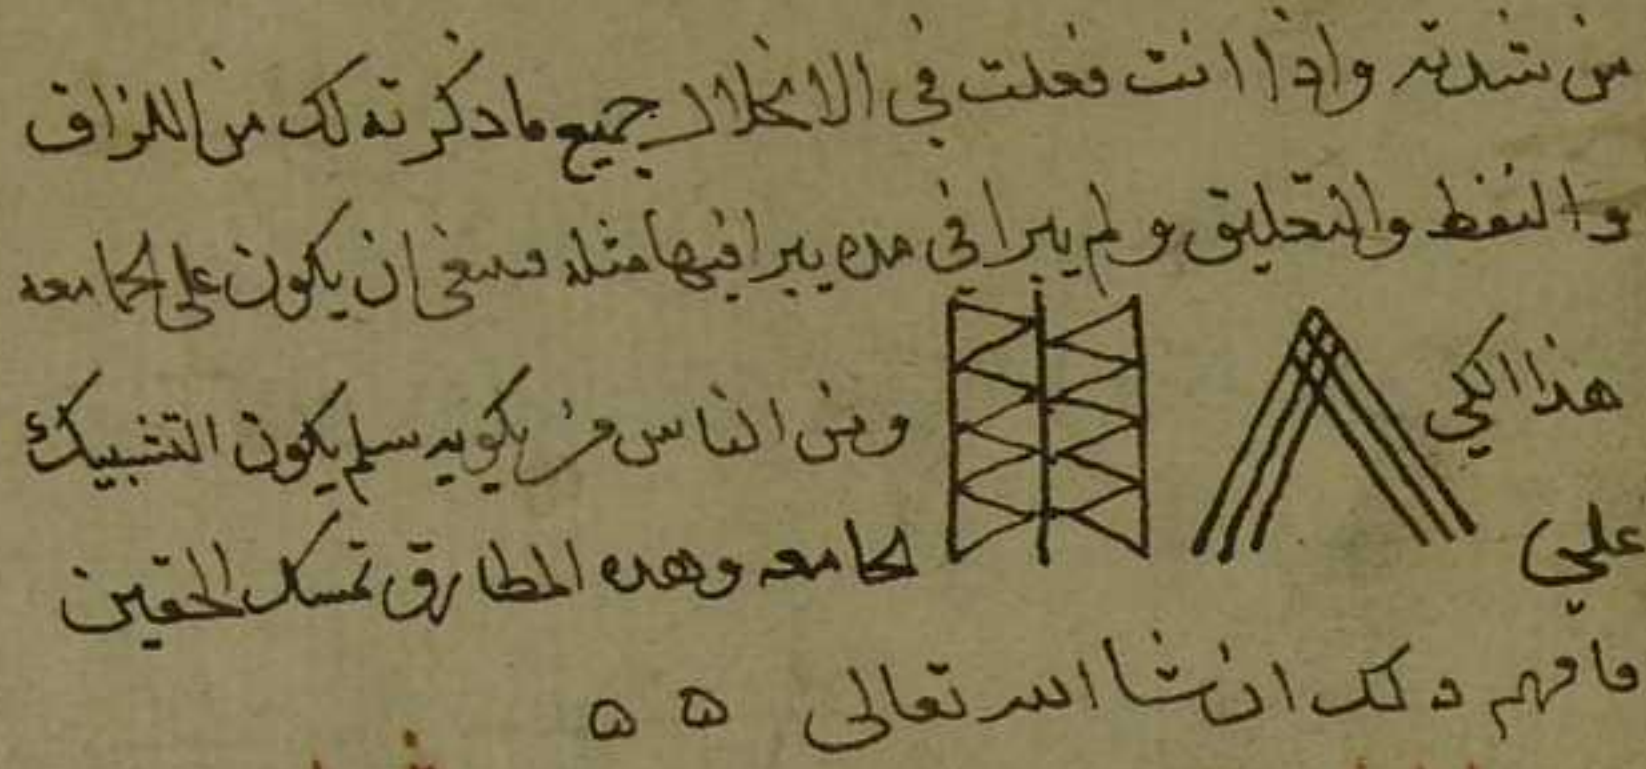 من شدته واذا انت فعلت في الانخلال جميع ما ذكرته لك من اللزاق
والنفط والتعليق ولم يبرا في مده يبرا فيها مثله فينبغي ان يكون على الجامعه
هذا الكي
ومن الناس من يكويه سلم يكون التشبيك
علي
الجامعه وهده المطارق تمسك الحقين
فافهم دلك ان شا الله تعالى ۵ ۵